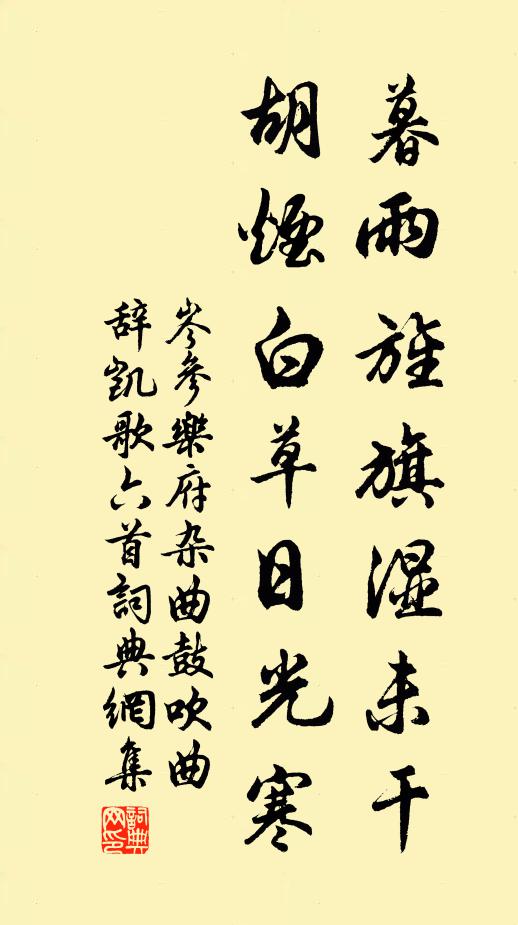 暮雨旌旗湿未干
胡煙白草日光寒
岑參樂府杂曲鼓吹曲
辞凯歌六首詞典網集
詞典
网印